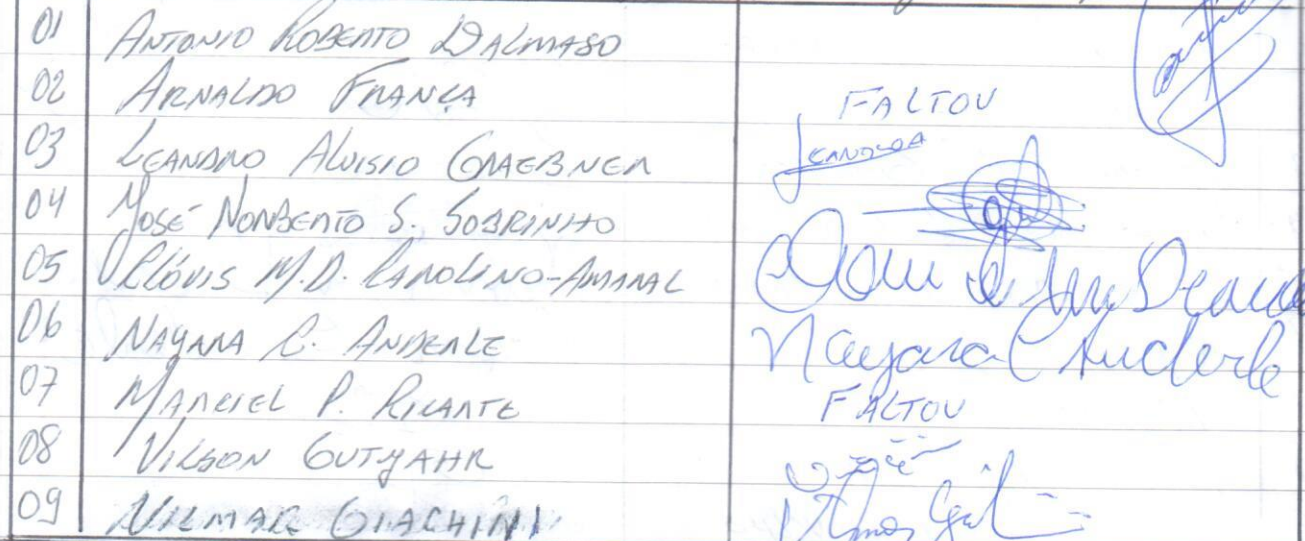 01 ANTONIO ROBERTO DALMASO
02 ARNALDO FRANÇA FALTOU
03 LEANDRO ALUISIO GRAEBNER LEANDRO
04 JOSÉ NORBERTO S. SOBRINHO
05 CLÓVIS M.D. CAROLINO-AMARAL
06 NAYARA C. ANDERLE Nayara C Anderle
07 MARCIEL P. PICANTE FALTOU
08 VILSON GUTJAHR
09 VILMAR GIACHINI